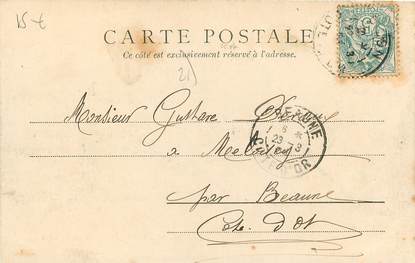 15 €
CARTE POSTALE
Ce côté est exclusivement réservé à l'adresse.
21)
Monsieur Gustave
BEAUNE
6
23 -3
CÔTE D'OR
a
par Beaune
Côte d'Or